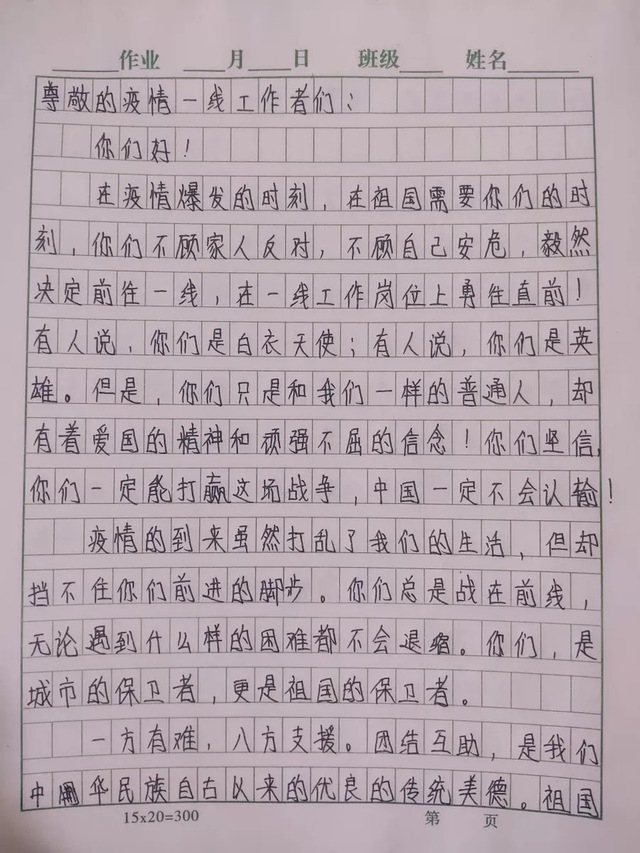 作业 月 日 班级 姓名
尊敬的疫情一线工作者们：
你们好！
在疫情爆发的时刻，在祖国需要你们的时
刻，你们不顾家人反对，不顾自己安危，毅然
决定前往一线，在一线工作岗位上勇往直前！
有人说，你们是白衣天使；有人说，你们是英
雄。但是，你们只是和我们一样的普通人，却
有着爱国的精神和顽强不屈的信念！你们坚信，
你们一定能打赢这场战争，中国一定不会认输！
疫情的到来虽然打乱了我们的生活，但却
挡不住你们前进的脚步。你们总是战在前线，
无论遇到什么样的困难都不会退缩。你们，是
城市的保卫者，更是祖国的保卫者。
一方有难，八方支援。团结互助，是我们
中华民族自古以来的优良的传统美德。祖国
15x20=300 第 页